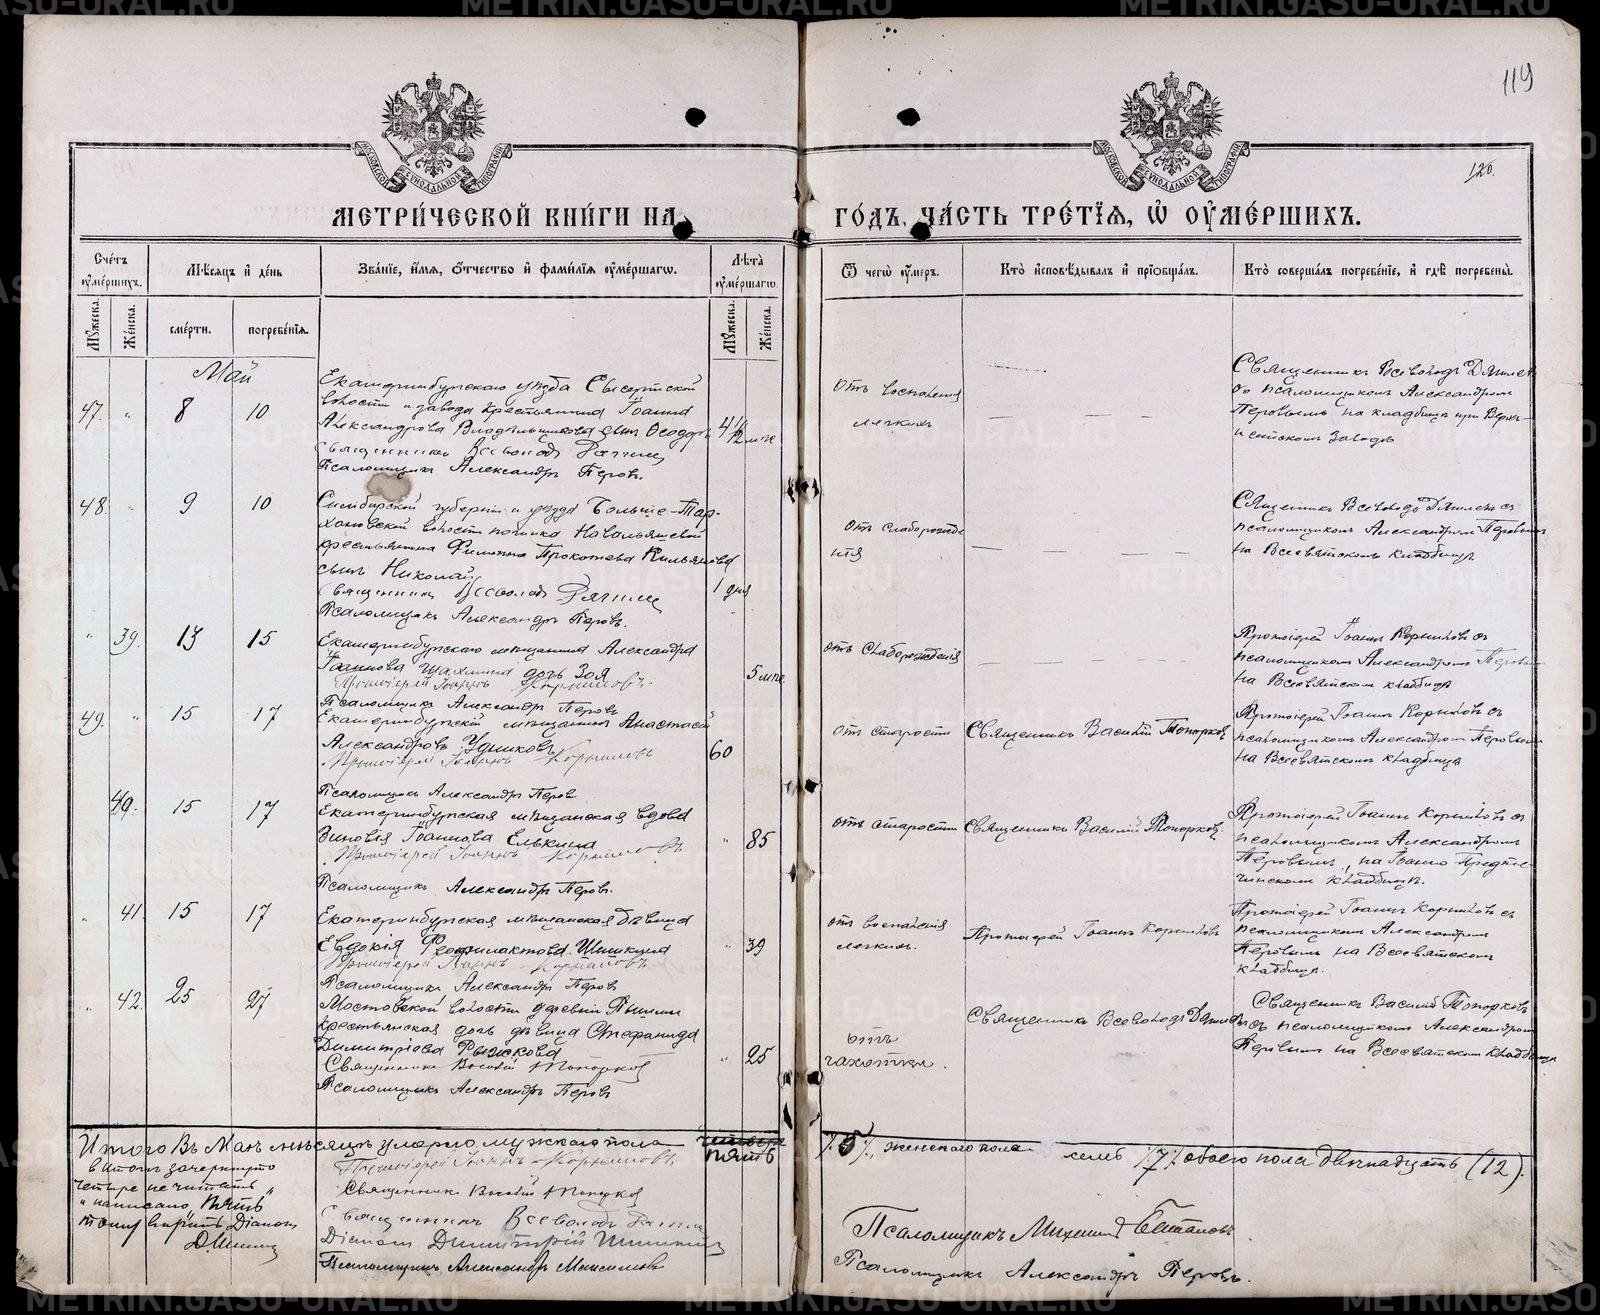 119
120.
МЕТРИЧЕСКОЙ КНИГИ НА ГОДЪ, ЧАСТЬ ТРЕТІЯ, Ѡ ОУМЕРШИХЪ.
Счетъ оумершихъ.
Мѣсяцъ и день
Званіе, имя, отчество и фамилія оумершагѡ.
Лѣта оумершагѡ.
Ѿ чегѡ оумеръ.
Кто исповѣдывалъ и пріобщалъ.
Кто совершалъ погребеніе, и гдѣ погребены.
Мужеска.
Женска.
смерти.
погребенія.
Мужеска.
Женска.
Май
47. " 8 10
Екатеринбургскаго уѣзда Сысертской
волости и завода крестьянина Іоанна
Александрова Владѣльщикова сынъ Ѳеодоръ
4 1/2 мце
Священникъ Всеволодъ
Псаломщикъ Александръ Перовъ.
Отъ воспаленія
легкихъ
Священникъ Всеволодъ
съ псаломщикомъ Александромъ
Перовымъ на кладбищѣ при Верх-
Исетскомъ Заводѣ
48. " 9 10
Симбирской губерніи и уѣзда Больше-Тар-
хановской волости
крестьянина Филиппа Прокопьева
сынъ Николай
1 дня
Священникъ Всеволодъ
Псаломщикъ Александръ Перовъ.
Отъ слаборожде
нія
Священникъ Всеволодъ съ
псаломщикомъ Александромъ Перовымъ
на Всесвятскомъ кладбищѣ.
" 39. 13 15
Екатеринбургскаго мѣщанина Александра
Іоаннова дочь Зоя
5 мце
Протоіерей Іоаннъ Корниловъ.
Псаломщикъ Александръ Перовъ
отъ слаборожденія
Протоіерей Іоаннъ Корниловъ съ
псаломщикомъ Александромъ Перовымъ
на Всесвятскомъ кладбищѣ
49. " 15 17
Екатеринбургскій мѣщанинъ Анастасій
Александровъ
60
Протоіерей Іоаннъ Корниловъ
Псаломщикъ Александръ Перовъ
отъ старости
Священникъ Василій Топорковъ
Протоіерей Іоаннъ Корниловъ съ
псаломщикомъ Александромъ Перовымъ
на Всесвятскомъ кладбищѣ
40. 15 17
Екатеринбургская мѣщанская вдова
Зиновія Іоаннова Елькина
" 85
Протоіерей Іоаннъ Корниловъ
Псаломщикъ Александръ Перовъ.
отъ старости
Священникъ Василій Топорковъ.
Протоіерей Іоаннъ Корниловъ съ
псаломщикомъ Александромъ
Перовымъ, на Іоанно-Предте-
ченскомъ кладбищѣ.
" 41. 15 17
Екатеринбургская мѣщанская дѣвица
Евдокія Феофилактова Шишкина
" 39
Протоіерей Іоаннъ Корниловъ
Псаломщикъ Александръ Перовъ
отъ воспаленія
легкихъ.
Протоіерей Іоаннъ Корниловъ
Протоіерей Іоаннъ Корниловъ съ
псаломщикомъ Александромъ
Перовымъ на Всесвятскомъ
кладбищѣ.
" 42. 25 27
Мостовской волости деревни Пышмы
крестьянская дочь дѣвица Стефанида
Димитріева Рыжкова
" 25
Священникъ Василій Топорковъ
Псаломщикъ Александръ Перовъ
отъ
чахотки.
Священникъ Всеволодъ
Священникъ Василій Топорковъ
съ псаломщикомъ Александромъ
Перовымъ на Всесвятскомъ кладбищѣ
Итого въ Маѣ мѣсяцѣ умерло мужскаго пола четыре пять /5/, женскаго пола семь /7/ обоего пола двѣнадцать (12).
В итогѣ зачеркнуто
четыре не читать,
" написано, пять
тому вѣрить Діаконъ
Протоіерей Іоаннъ Корниловъ
Священникъ Василій Топорковъ
Священникъ Всеволодъ
Діаконъ Димитрій
Псаломщикъ Александръ
Псаломщикъ
Псаломщикъ Александръ Перовъ.
METRIKI.GASO-URAL.RU